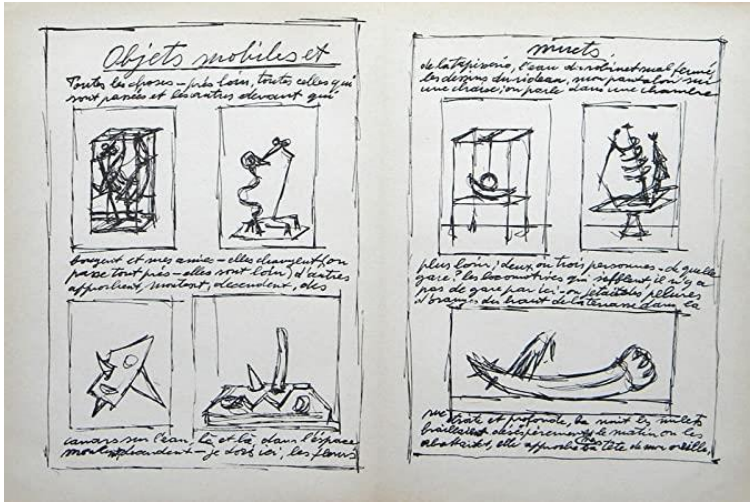 Objets mobiles et
Toutes les choses – près, loin, toutes celles qui
sont passées et les autres devant qui
bougent et mes amies – elles changent (on
passe tout près – elles sont loin) d'autres
approchent, montent, descendent, des
canards sur l'eau, là et là, dans l'espace
montent descendent – je dors ici, les fleurs
muets
de la tapisserie, l'eau du robinet mal fermé
les dessins du rideau, mon pantalon sur
une chaise, on parle dans une chambre
plus loin; deux ou trois personnes – de quelle
gare? les locomotives qui sifflent, il n'y a
pas de gare par ici – on jetait des pelures
d'oranges du haut de la terrasse dans la
rue étroite et profonde, la nuit les mulets
braillaient désespérément, le matin on les
abattait, elle approche sa tête de mon oreille,